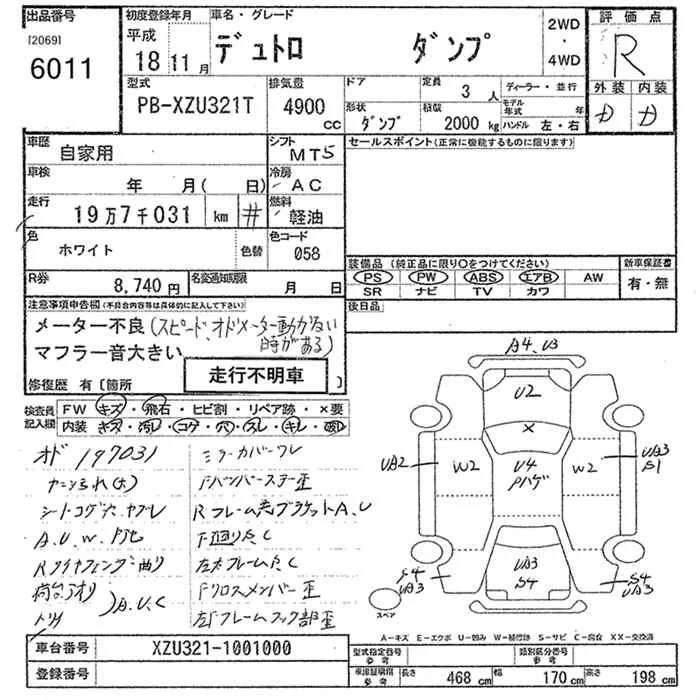 出品番号
[2069]
6011
初度登録年月
平成
18 11月
車名・グレード
デュトロ ダンプ
2WD
・
4WD
評価点
R
外装 内装
D D
型式
PB-XZU321T
排気量
4900
cc
ドア
形状
ダンプ
定員
3人
積載
2000 kg
ディーラー・並行
モデル年式 年
ハンドル 左・右
車歴
自家用
シフト
MT5
車検
年 月( 日)
冷房
AC
走行
19万7千031 km #
燃料
軽油
色
ホワイト
色替
色コード
058
R券
8,740円
名変通知期限
月 日
セールスポイント(正常に機能するものに限ります)
装備品(純正品に限り○をつけてください)
PS PW ABS エアB AW
SR ナビ TV カワ
新車保証書
有・無
後日品
注意事項申告欄(不具合内容等は具体的に記入して下さい)
メーター不良(スピード、オドメーター動かない時がある)
マフラー音大きい
走行不明車
修復歴 有〔箇所 〕
検査員記入欄
FW キズ・飛石・ヒビ割・リペア跡・×要
内装 キズ・汚レ・コゲ・穴・スレ・キレ・
オド 197031
シートコゲ穴ヤブレ
A.U.W.
荷台アオリ
トリイ
A.U.C
ミラーカバーワレ
Fバンパーステー歪
Rフレーム先ブラケットA.U
下廻りS.C
左右フレームS.C
Fクロスメンバー歪
左Fフレームフック部歪
A4.U3
U2
×
UA2
W2
U4
Pハゲ
W2
UA3
S1
UA3
S4
S4
UA3
S4
UA3
スペア
A-キズ E-エクボ U-凹み W-補修跡 S-サビ C-腐食 XX-交換済
車台番号
XZU321-1001000
登録番号
型式指定番号
参考
類別区分番号
参考
車庫証明用
参考
長さ 468 cm
幅 170 cm
高さ 198 cm